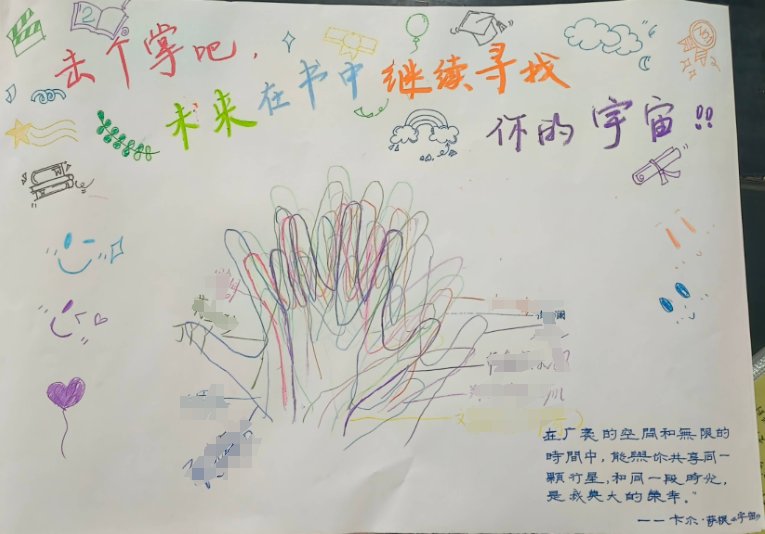 击个掌吧，
未来在书中继续寻找
你的宇宙!!
在广袤的空間和無限的
時間中，能與你共享同一
顆行星，和同一段時光，
是我莫大的榮幸。"
——卡尔·萨根《宇宙》